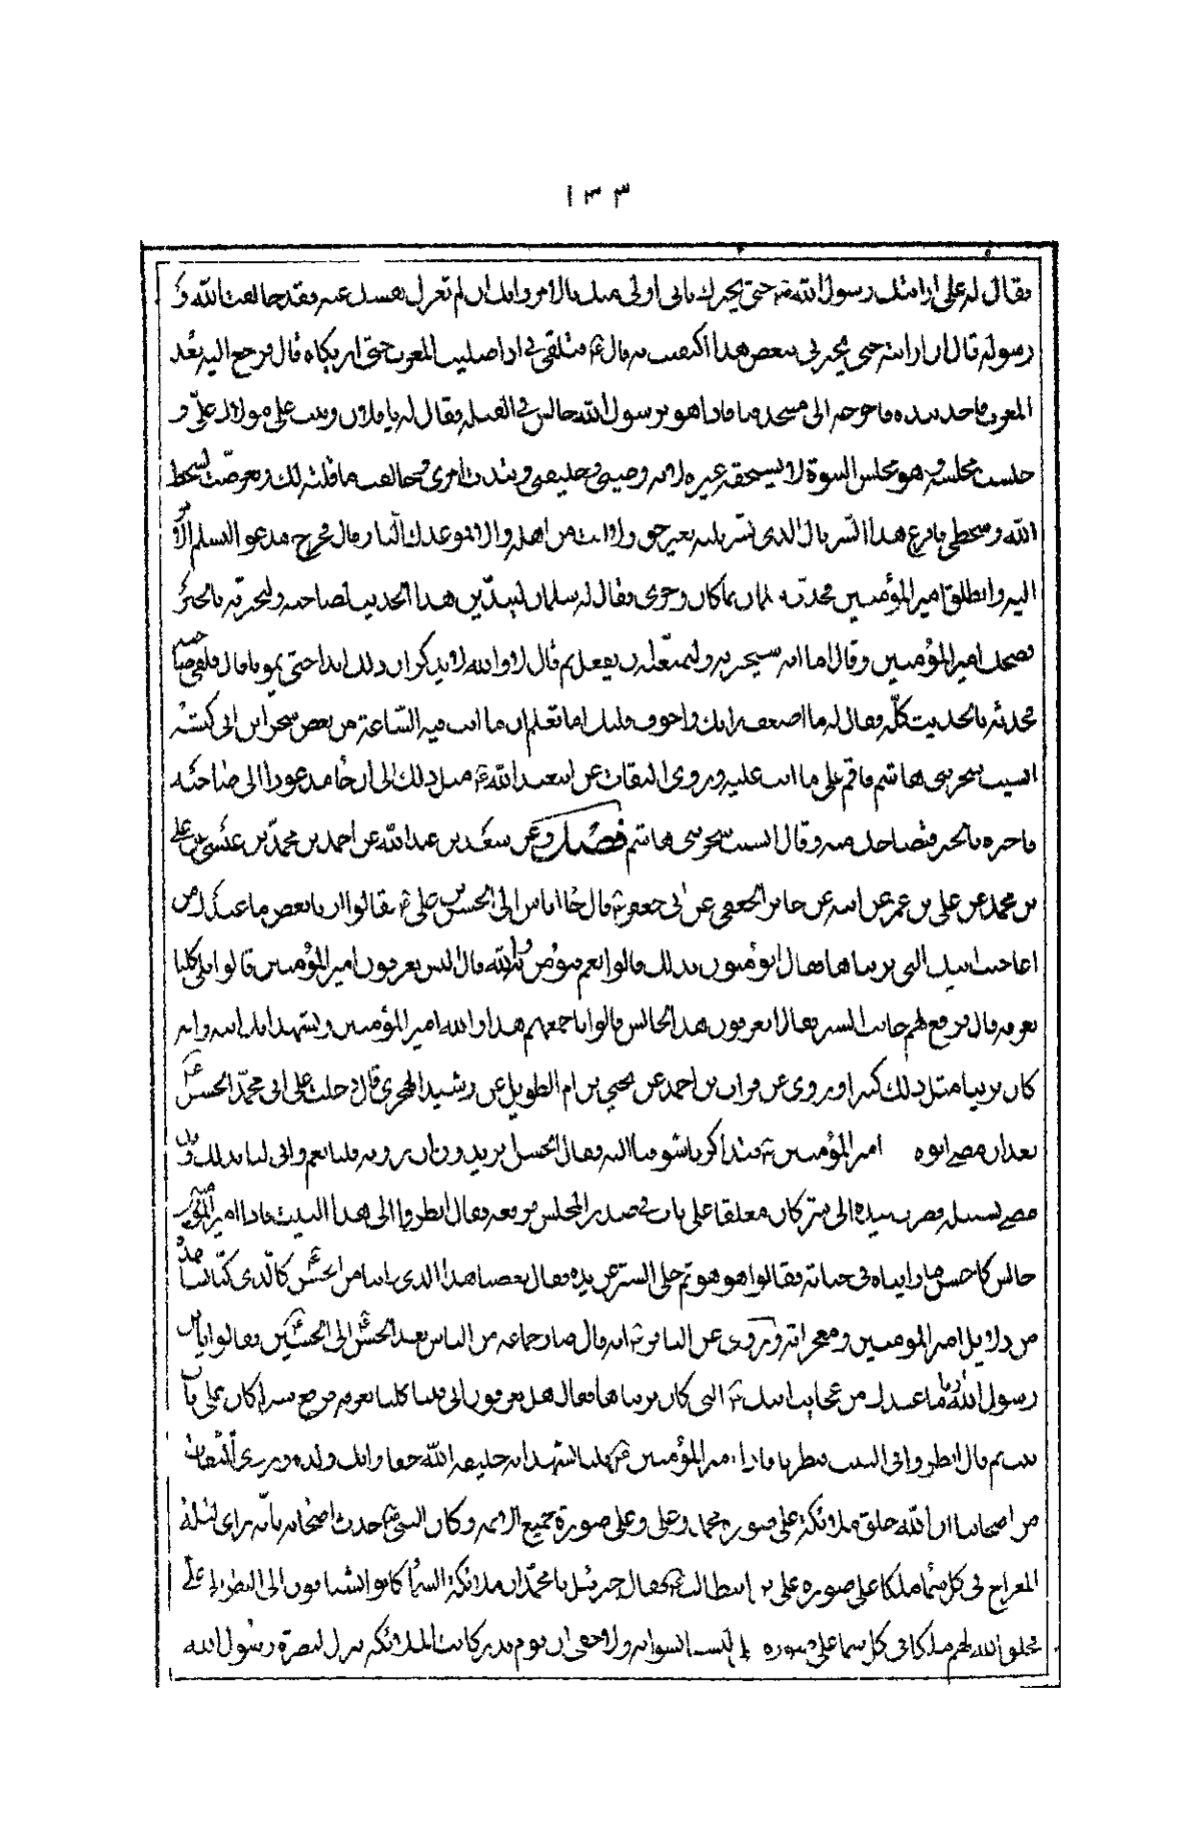 ١٣٣
فقال له علی ان اتیتك رسول الله حتی یخبرك بانی اولی منك بالامر وانك ان لم تعزل نفسك عنه فقد خالفت الله و
رسوله قال ان اراینه حتی یخبرنی ببعض هذا اکتفیت به قال فتلقی فی اذا صلیت المغرب حتی اریکاه قال فرجع الیه بعد
المغرب فاخذ بیده فاخرجه الی مسجد قبا فاذا هو برسول الله جالس فی القبلة فقال له یا فلان وثبت علی مولاك علی و
جلست مجلسه وهو مجلس النبوة لا یستحقه غیره لانه وصیی وخلیفتی ونبذت امری وخالفت ما قلته لك وتعرضت لسخط
الله وسخطی فانزع هذا السربال الذی تسربلته بغیر حق ولا انت من اهله والا فموعدك النار قال فخرج مذعورا لیسلم الامر
الیه وانطلق امیر المؤمنین فحدث سلمان بما کان وجری فقال له سلمان لیبدین هذا الحدیث لصاحبه ولیخبرنه بالخبر
فضحك امیر المؤمنین وقال اما انه سیخبره ولیمنعنه ان یفعل ثم قال لا والله لا یذکران ذلك ابدا حتی یموتا قال فلقی صاحبه
فحدثه بالحدیث کله فقال له ما اضعف رایك واخوف قلبك اما تعلم ان ما انت فیه الساعة من بعض سحر ابن ابی کبشة
انسیت سحر بنی هاشم فاقم علی ما انت علیه وروی الثقات عن ابی عبد الله مثل ذلك الی ان جاء مذعورا الی صاحبه
فاخبره بالخبر فتضاحك منه وقال انسیت سحر بنی هاشم فصل وعن سعد بن عبد الله عن احمد بن محمد بن عیسی عن علی
بن محمد عن علی بن عمر عن ابیه عن جابر الجعفی عن ابی جعفر قال جاء اناس الی الحسن بن علی فقالوا ارنا بعض ما عندك من
اعاجیب ابیك التی یریناها فقال اتؤمنون بذلك قالوا نعم نؤمن والله قال الیس تعرفون امیر المؤمنین قالوا بلی کلنا
نعرفه قال فرفع لهم جانب الستر فقال اتعرفون هذا الجالس قالوا باجمعهم هذا والله امیر المؤمنین ونشهد انك ابنه وانه
کان یرینا مثل ذلك کثیرا وروی عن فرات بن احمد عن یحیی بن ام الطویل عن رشید الهجری قال دخلت علی ابی محمد الحسن
بعد ان مضی ابوه امیر المؤمنین فتذاکرنا شوقنا الیه فقال الحسن تریدون ان تروه قلنا نعم وانی لنا بذلك وقد
مضی لسبیله فضرب بیده الی ستر کان معلقا علی باب فی صدر المجلس فرفعه فقال انظروا الی هذا البیت فاذا امیر المؤمنین
جالس کاحسن ما رایناه فی حیاته فقالوا هو هو ثم خلی الستر عن یده فقال بعضنا هذا الذی راینا من الحسن کالذی کنا نشاهد
من دلایل امیر المؤمنین ومعجزاته وروی عن الباقر انه قال صار جماعة من الناس بعد الحسن الی الحسین فقالوا یابن
رسول الله ما عندك من عجایب ابیك التی کان یریناها فقال هل تعرفون ابی قلنا کلنا نعرفه فرفع سترا کان علی باب
بیت ثم قال انظروا فی البیت فنظرنا فاذا امیر المؤمنین فقلنا نشهد انه خلیفة الله حقا وانك ولده وروی الثقات
من اصحابنا ان الله خلق ملائکة علی صورة محمد وعلی وعلی صورة جمیع الائمة وکان النبی حدث اصحابه بانه رای لیلة
المعراج فی کل سماء ملکا علی صورة علی بن ابی طالب فقال جبرئیل یا محمد ان ملائکة السماء کانوا یشتاقون الی النظر الی علی
فخلق الله لهم ملکا فی کل سماء علی صورة لیستانسوا به ولا خفی ان یوم بدر کانت الملائکة تنزل لنصرة رسول الله